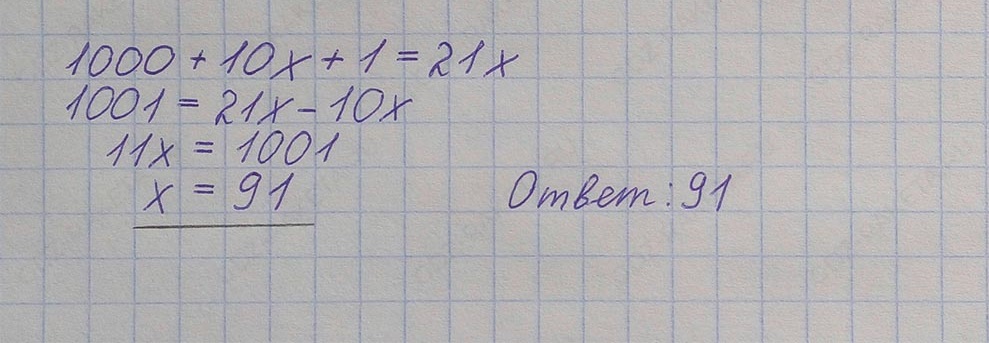 1000 + 10x + 1 = 21x
1001 = 21x - 10x
11x = 1001
x = 91
Ответ: 91